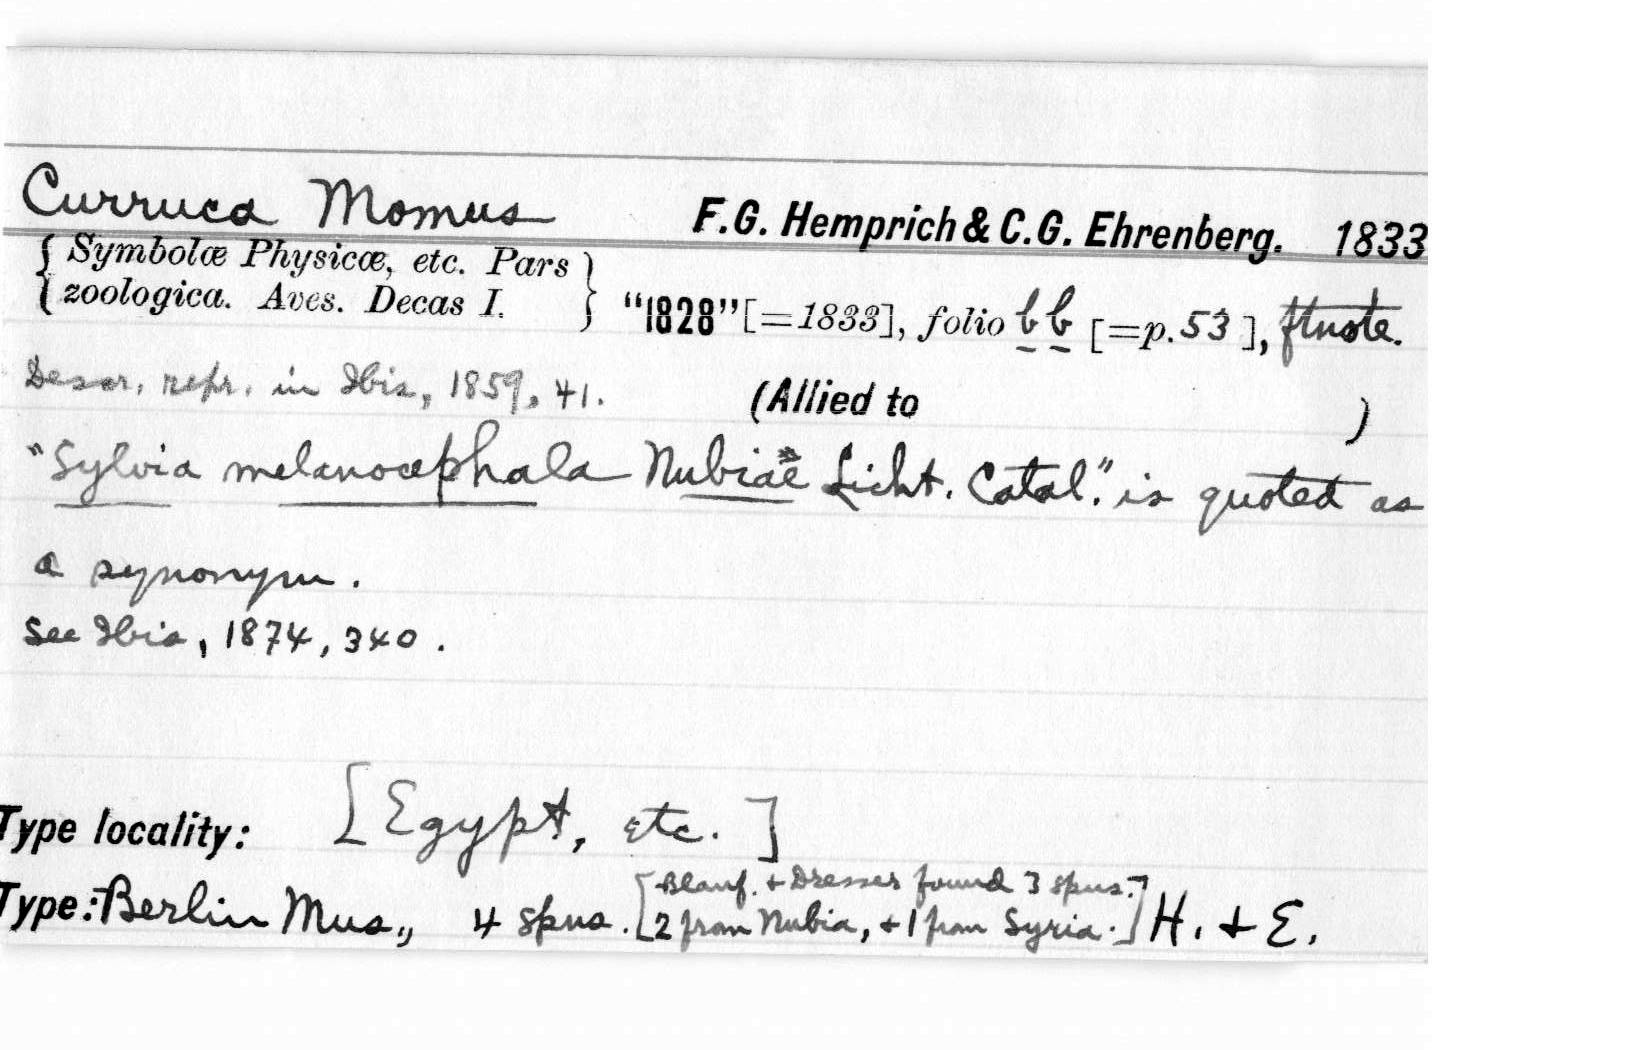 Curruca Momus F.G. Hemprich & C.G. Ehrenberg. 1833
{ Symbolæ Physicæ, etc. Pars }
{ zoologica. Aves. Decas I. } "1828" [=1833], folio bb [=p. 53 ], ftnote.
Descr. repr. in Ibis, 1859, 41. (Allied to )
"Sylvia melanocephala Nubiae Licht. Catal." is quoted as
a synonym.
See Ibis, 1874, 340.
Type locality: [Egypt, etc. ]
Type: Berlin Mus., 4 spns. [Blanf. + Dresser found 3 spns. 2 from Nubia, + 1 from Syria.] H. + E.